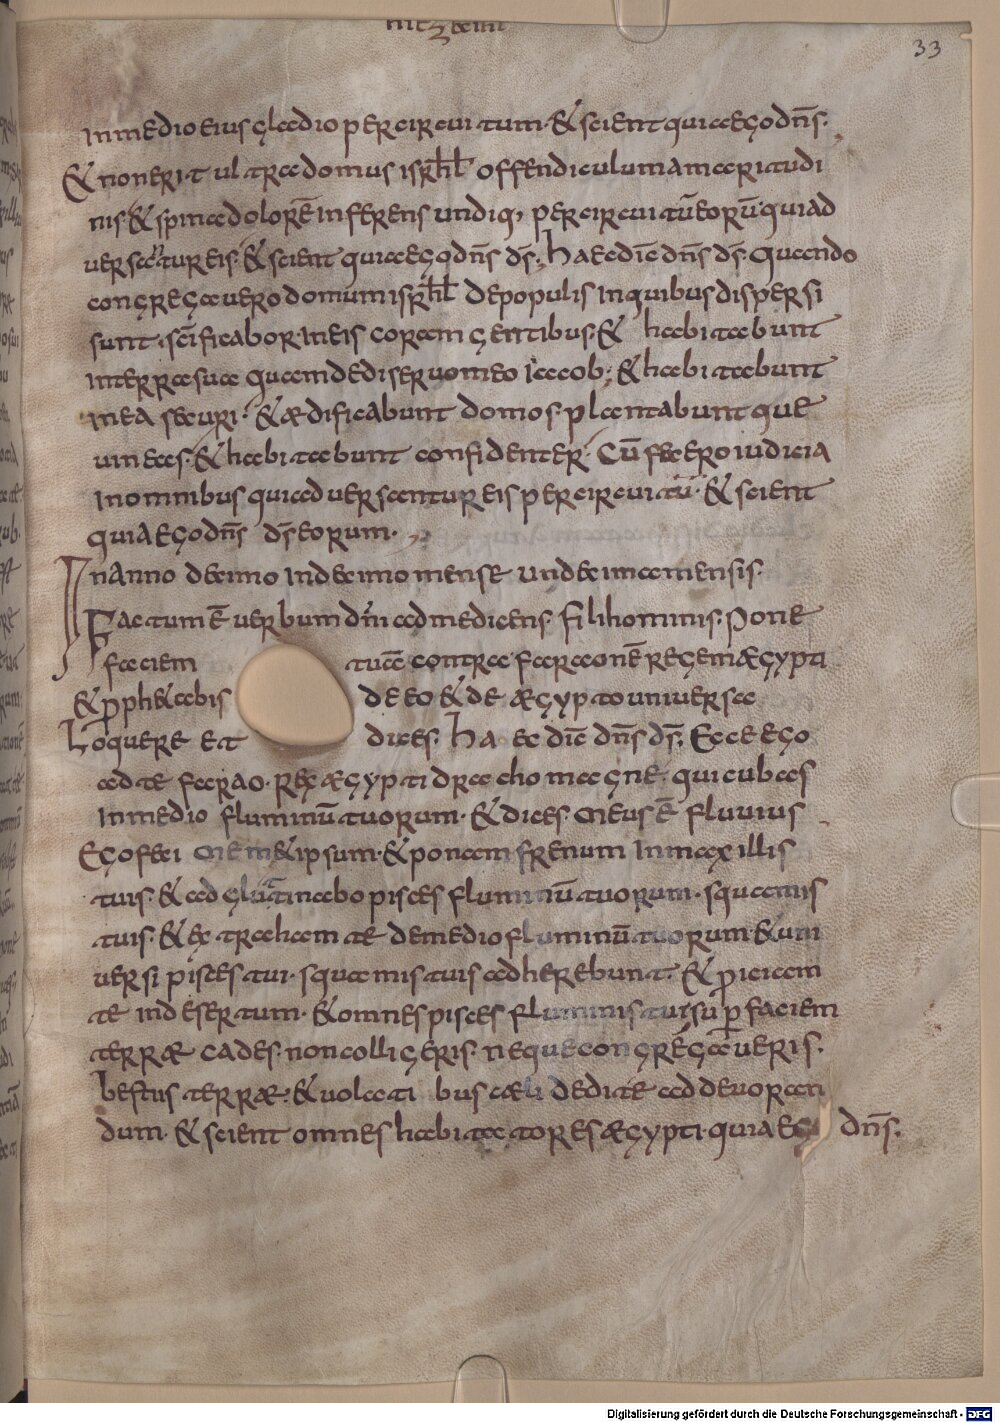 33
in medio eius gladio per circuitum. & scient quia ego dn̄s.
& non erit ultra domus isrāhl offendiculum amaritudi
nis. & spina dolorē inferens undiq, per circuitū eorū. qui ad
versantur eis. & scient quia ego dn̄s ds̄. haec dic̄ dn̄s ds̄. Quando
congregavero domum isrāhl de populis in quibus dispersi
sunt. scīficabor in eis coram gentibus. & habitabunt
in terra sua quam dedi servo meo iacob. & habitabunt
in ea securi. & ædificabunt domos plantabuntque
vineas. & habitabunt confidenter. Cū fecero iudicia
in omnibus qui adversantur eis per circuitū. & scient
quia ego dn̄s ds̄ eorum.
In anno decimo in decimo mense undecima mensis.
Factum ē verbum dn̄i ad me dicens. fili hominis. pone
faciem tuā contra faraonē regem ægypti
& pphetabis de eo & de ægypto universa
Loquere et dices. haec dic̄ dn̄s ds̄. Ecce ego
ad te farao. rex ægypti draco magne. qui cubas
in medio fluminū tuorum. & dices. meus ē fluvius
Ego feci memetipsum. & ponam frenum in maxillis
tuis. & adglutinabo pisces fluminū tuorum. squamis
tuis. & extraham te de medio fluminū tuorum. & uni
versi pisces tui. squamis tuis adherebunt. & proiciam
te in desertum. & omnes pisces fluminis tui. sup faciem
terræ cades. non colligeris. neque congregaveris.
bestiis terræ. & volatibus cæli dedi te ad devoran
dum. & scient omnes habitatores ægypti. quia ego dn̄s.
Digitalisierung gefördert durch die Deutsche Forschungsgemeinschaft - DFG